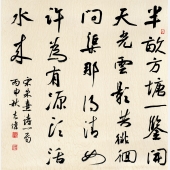 半畝方塘一鑒開
天光雲影共徘徊
問渠那得清如
許為有源頭活
水來
宋朱熹詩一首
丙申秋